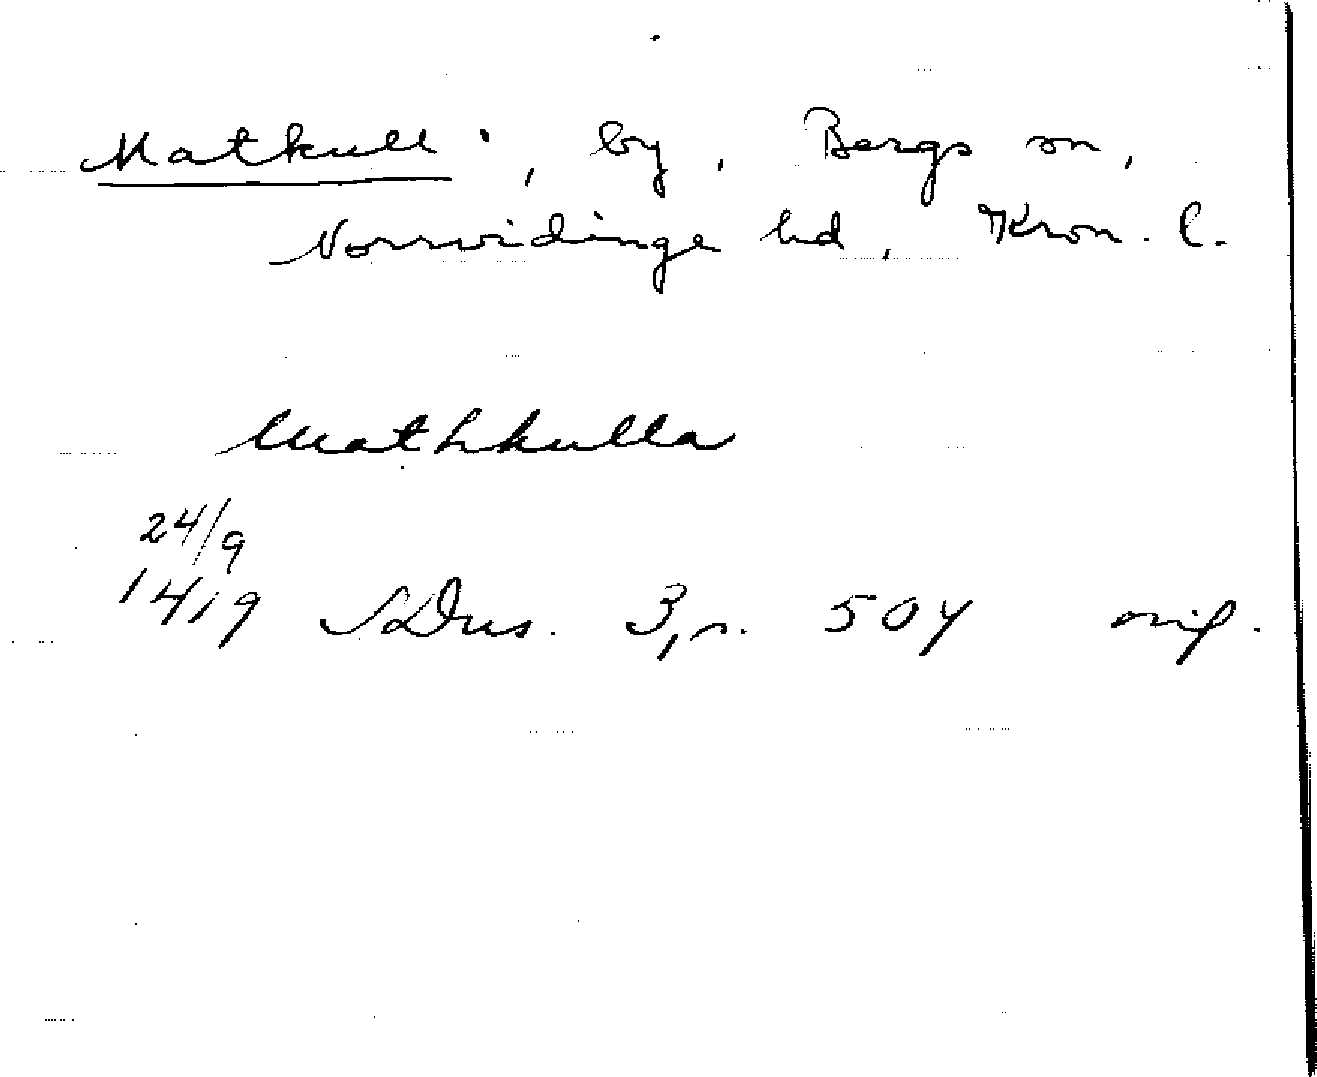 Matkull, by, Bergs sn,
Norrvidinge hd, Kron. l.
Mathkulla
24/9
1419 SDns. 3, s. 504 orig.